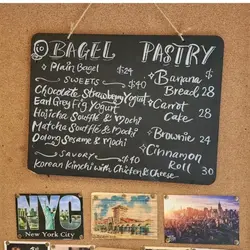 BAGEL
Plain Bagel $24
SWEETS $40
Chocolate Strawberry Yogurt
Earl Grey Fig Yogurt
Hojicha Soufflé & Mochi
Matcha Soufflé & Mochi
Oolong Sesame & Mochi
SAVORY
Korean Kimchi with Chicken & Cheese
PASTRY
Banana
Bread 28
Carrot
Cake 28
Brownie 24
Cinnamon
Roll 30
NYC
NEW YORK CITY